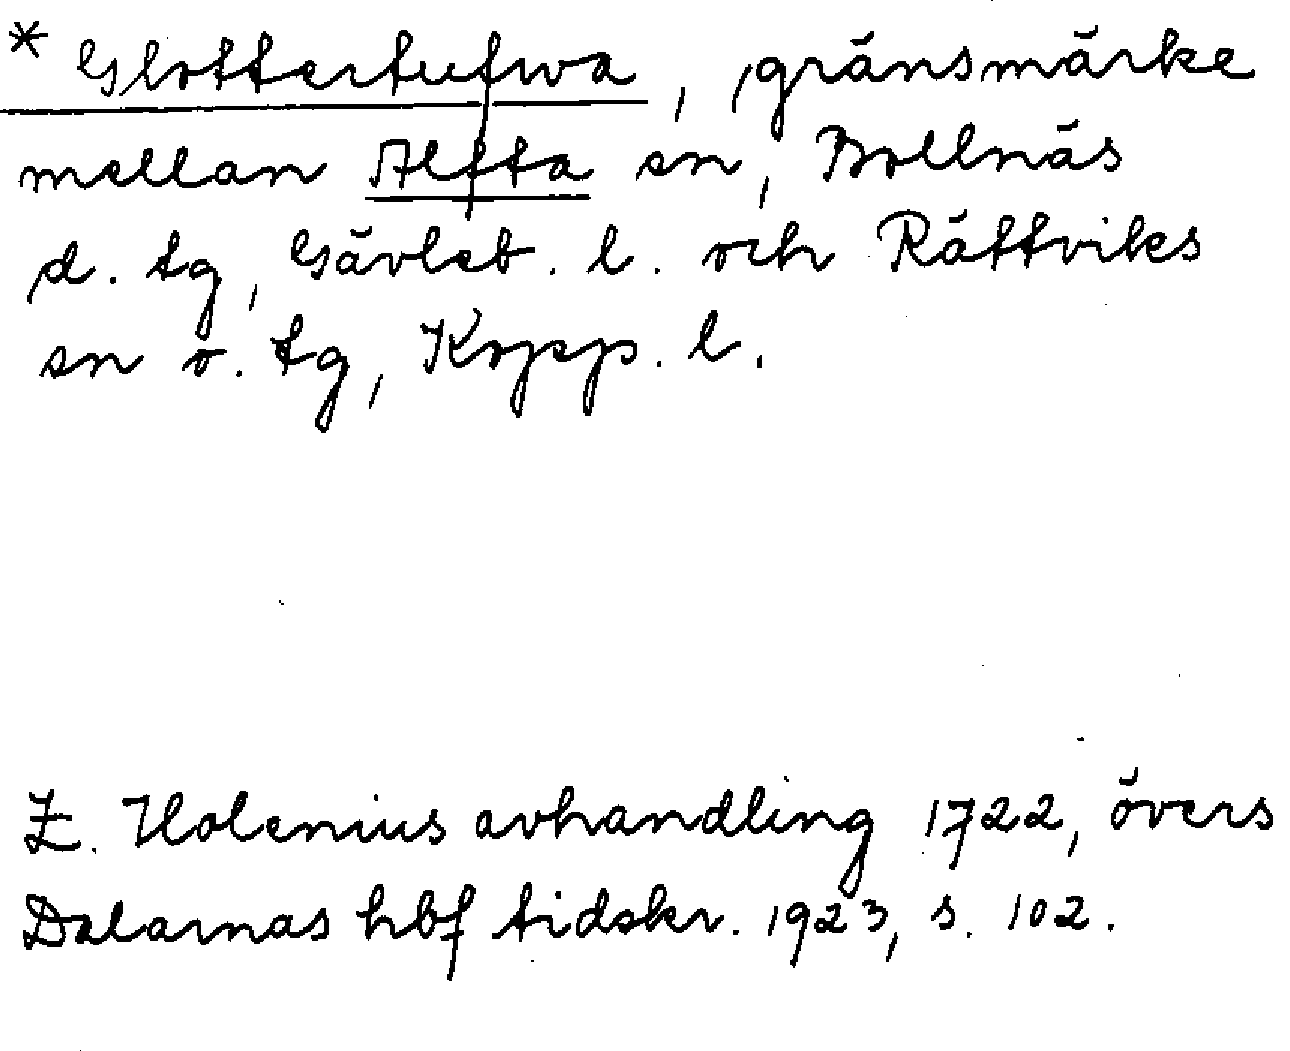 * Glottertufwa, gränsmärke
mellan Alfta sn, Bollnäs
d. tg, Gävleb. l. och Rättviks
sn o. tg, Kopp. l.
Z. Holenius avhandling 1722, övers
Dalarnas hbf tidskr. 1923, s. 102.